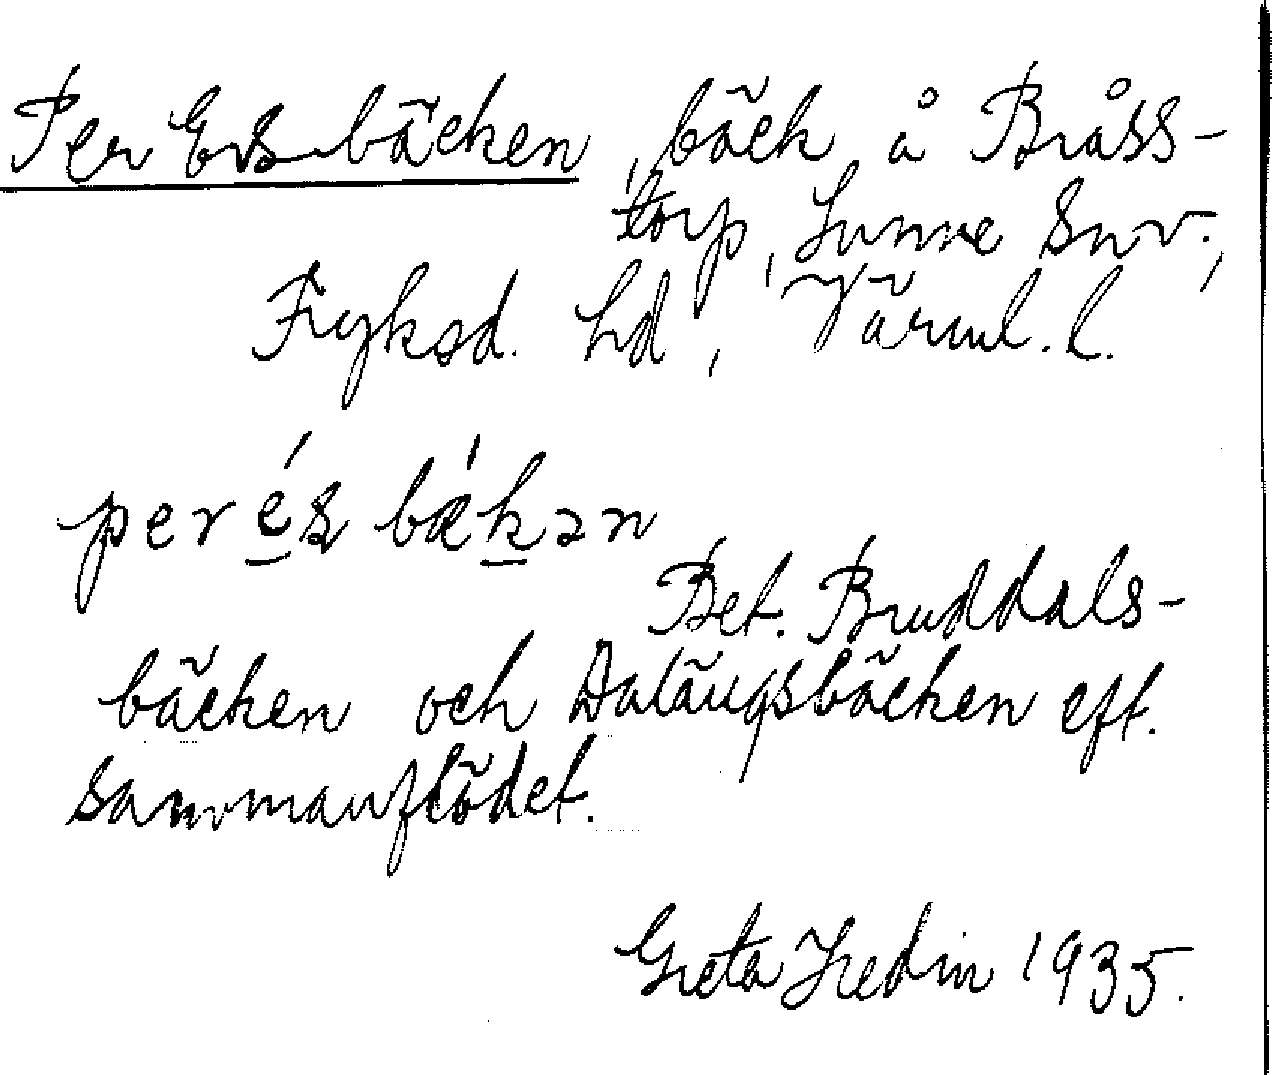 Per Ersbäcken, bäck å Bråss-
torp, Sunne snv.,
Fryksd. hd, Värml. l.
per és bækən
Bet. Bruddals-
bäcken och Dalängsbäcken eft.
sammanflödet.
Greta Hedin 1935.